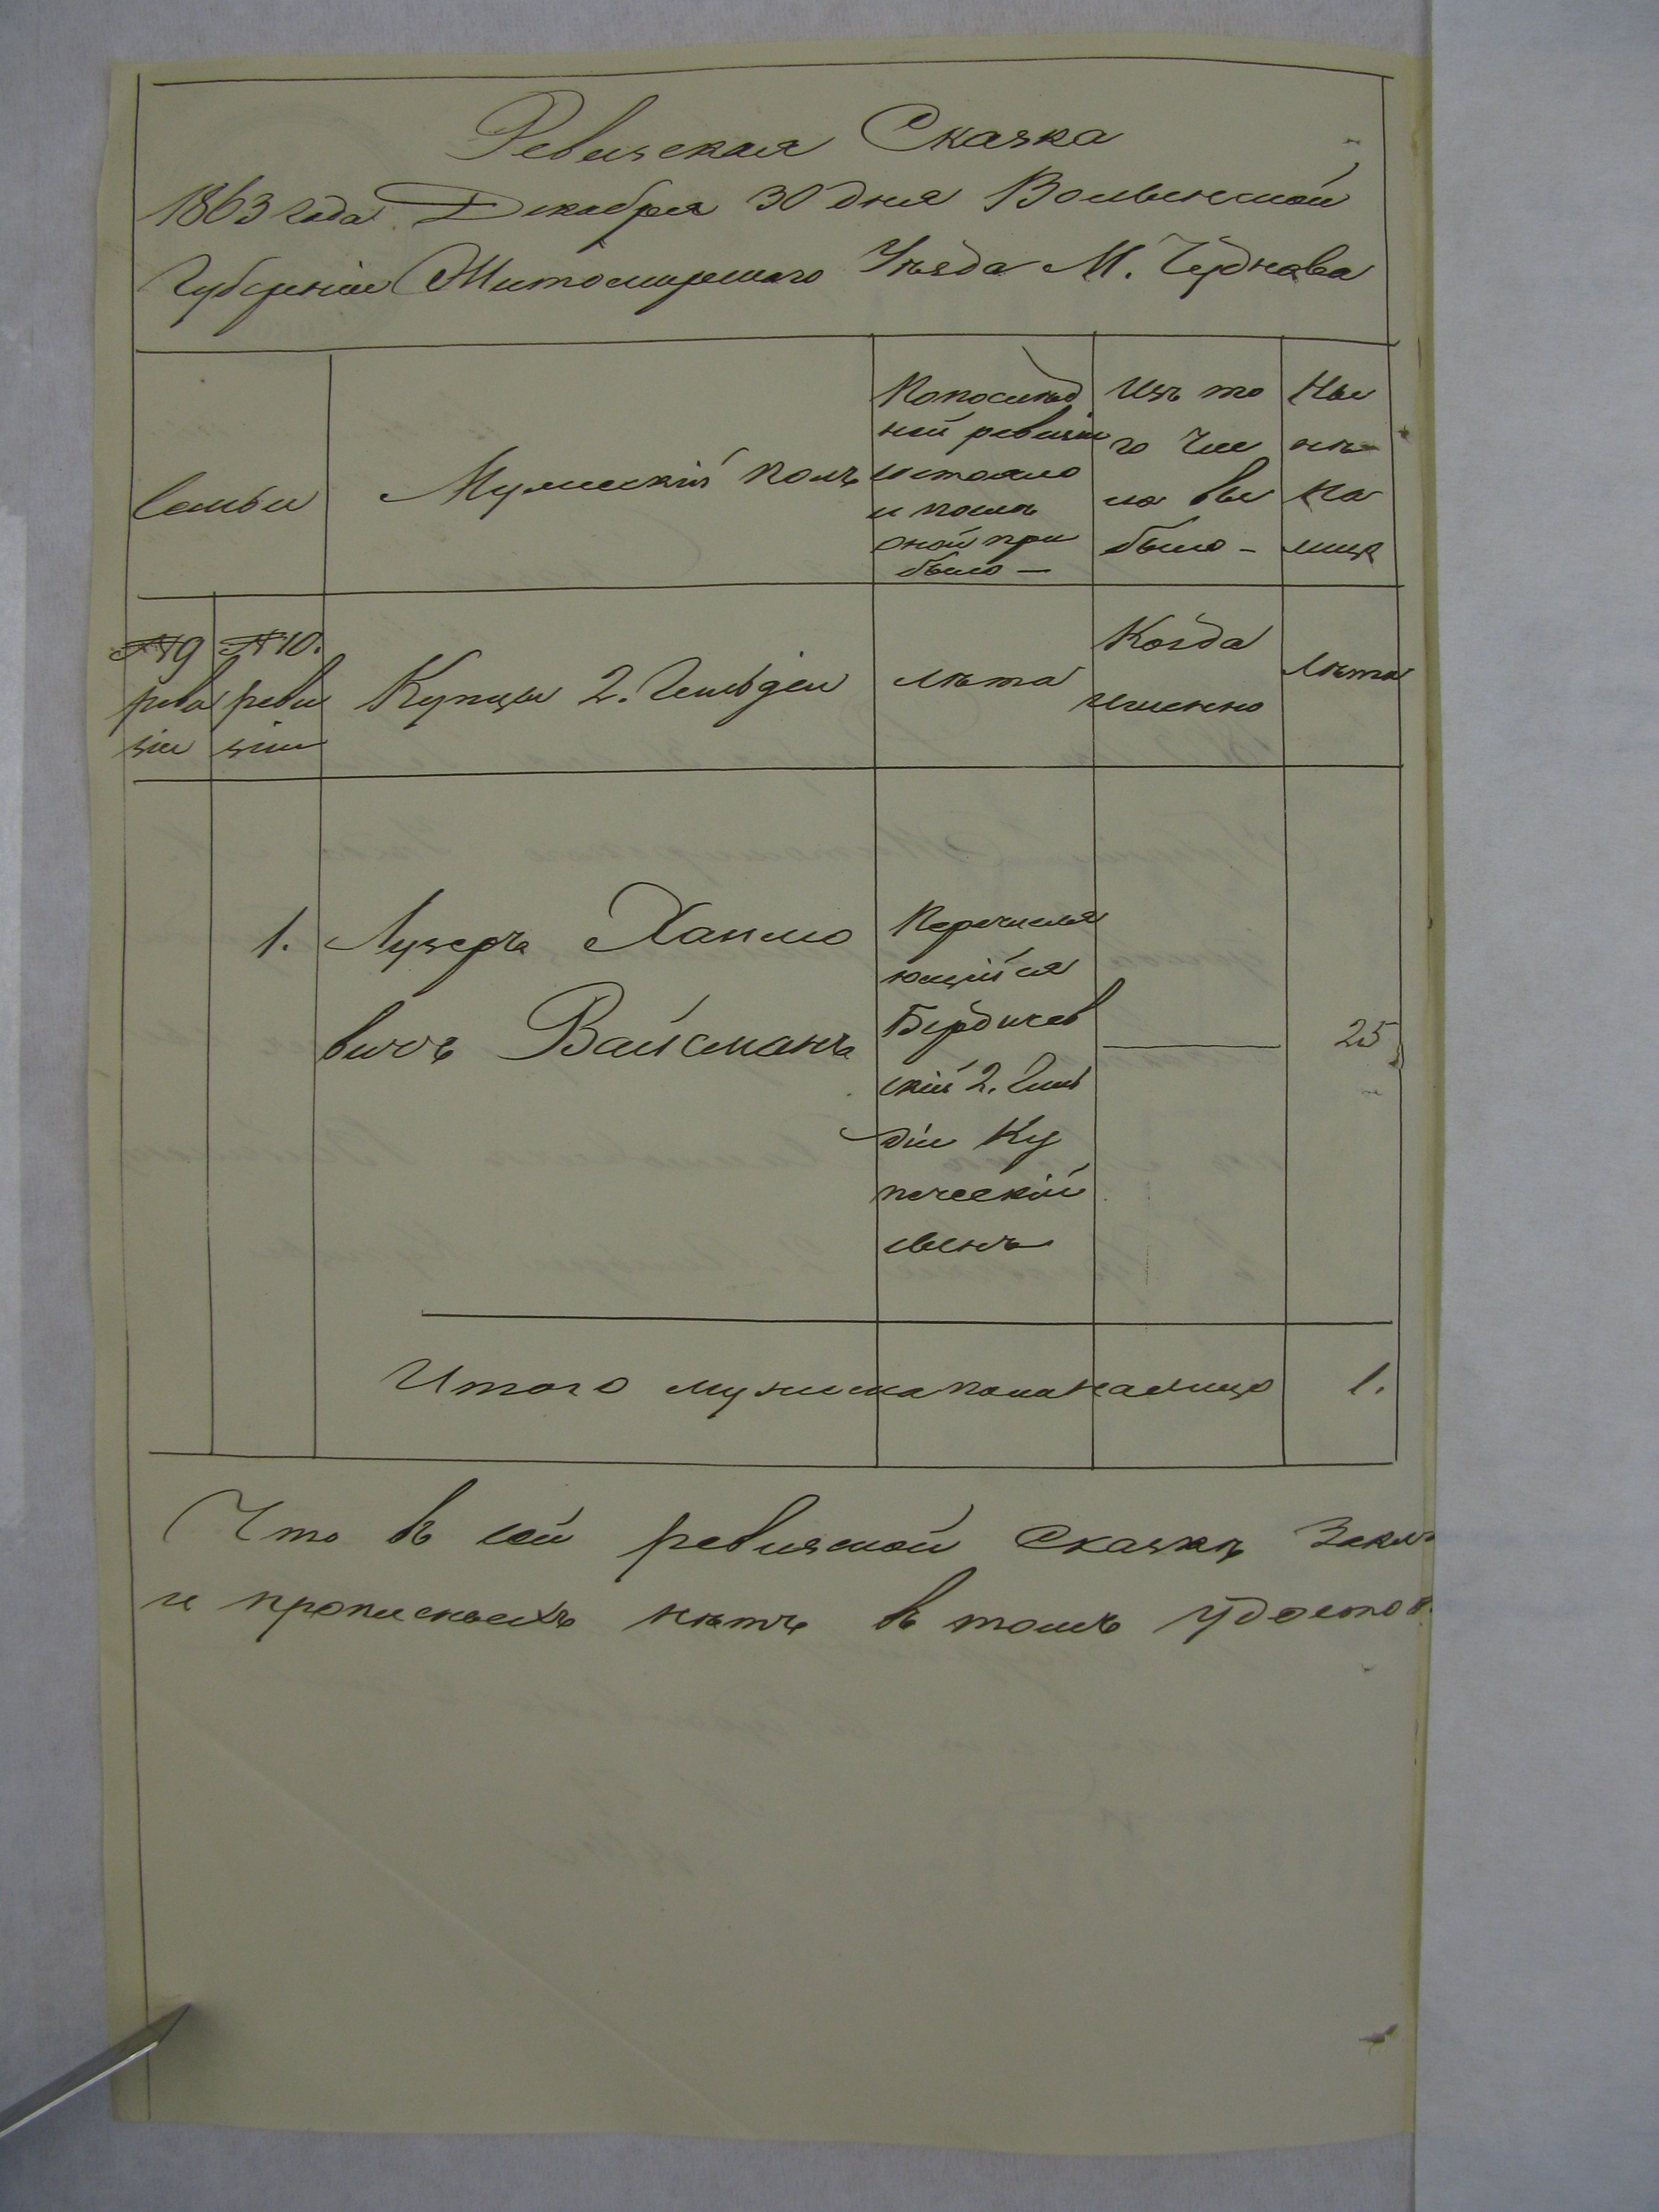 Ревизская Сказка
1863 года Декабря 30 дня Волынской
Губерніи Житомирскаго Уѣзда М. Чуднова
Семьи
Мужескій полъ
Попослѣд
ней ревизіи
состояло
и послѣ
оной при
было —
Изъ то
го чис
ла вы
было —
Ны
нѣ
на
лице
№ 9
реви
зіи
№ 10.
реви
зіи
Купцы 2. Гильдіи
лѣта
Когда
именно
Лѣта
1. Лузеръ Хаимо
вичъ Вайсманъ
Перечисля
ющійся
Бердичев
скій 2. Гиль
діи Ку
печескій
сынъ
25
Итого мужеска пола налицо 1.
Что въ сей ревизской Сказкѣ
и прописныхъ нѣтъ въ томъ удостов